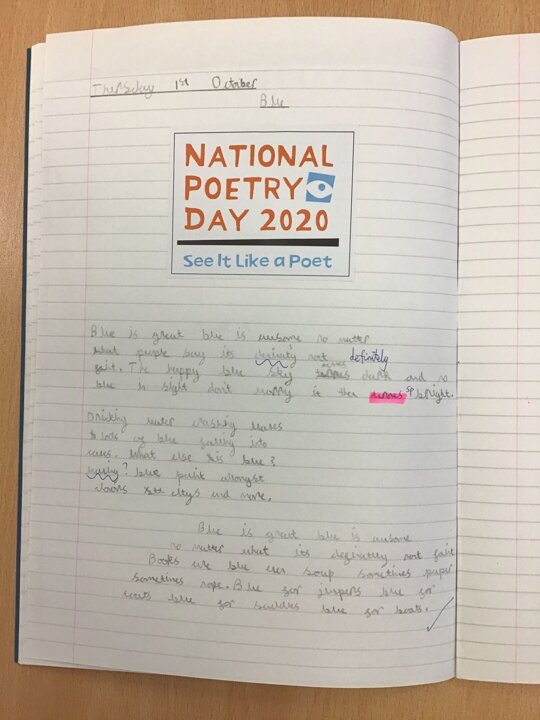 Thersday 1st October
Blue
NATIONAL
POETRY
DAY 2020
See It Like a Poet
Blue is great blue is awsome no matter
what purple say its definitly not definitely
faint. The happy blue sky dark and no
blue in sight don't worry it then bright.
Drinking water crashing waves
lots of blue falling into
caves. What else is blue?
blue paint alongst
doors citys and more.
Blue is great blue is awsome
no matter what its definitley not faint
Books are blue even soup sometimes paper
sometimes rope. Blue for jumpers blue for
coats blue for blue for boats.